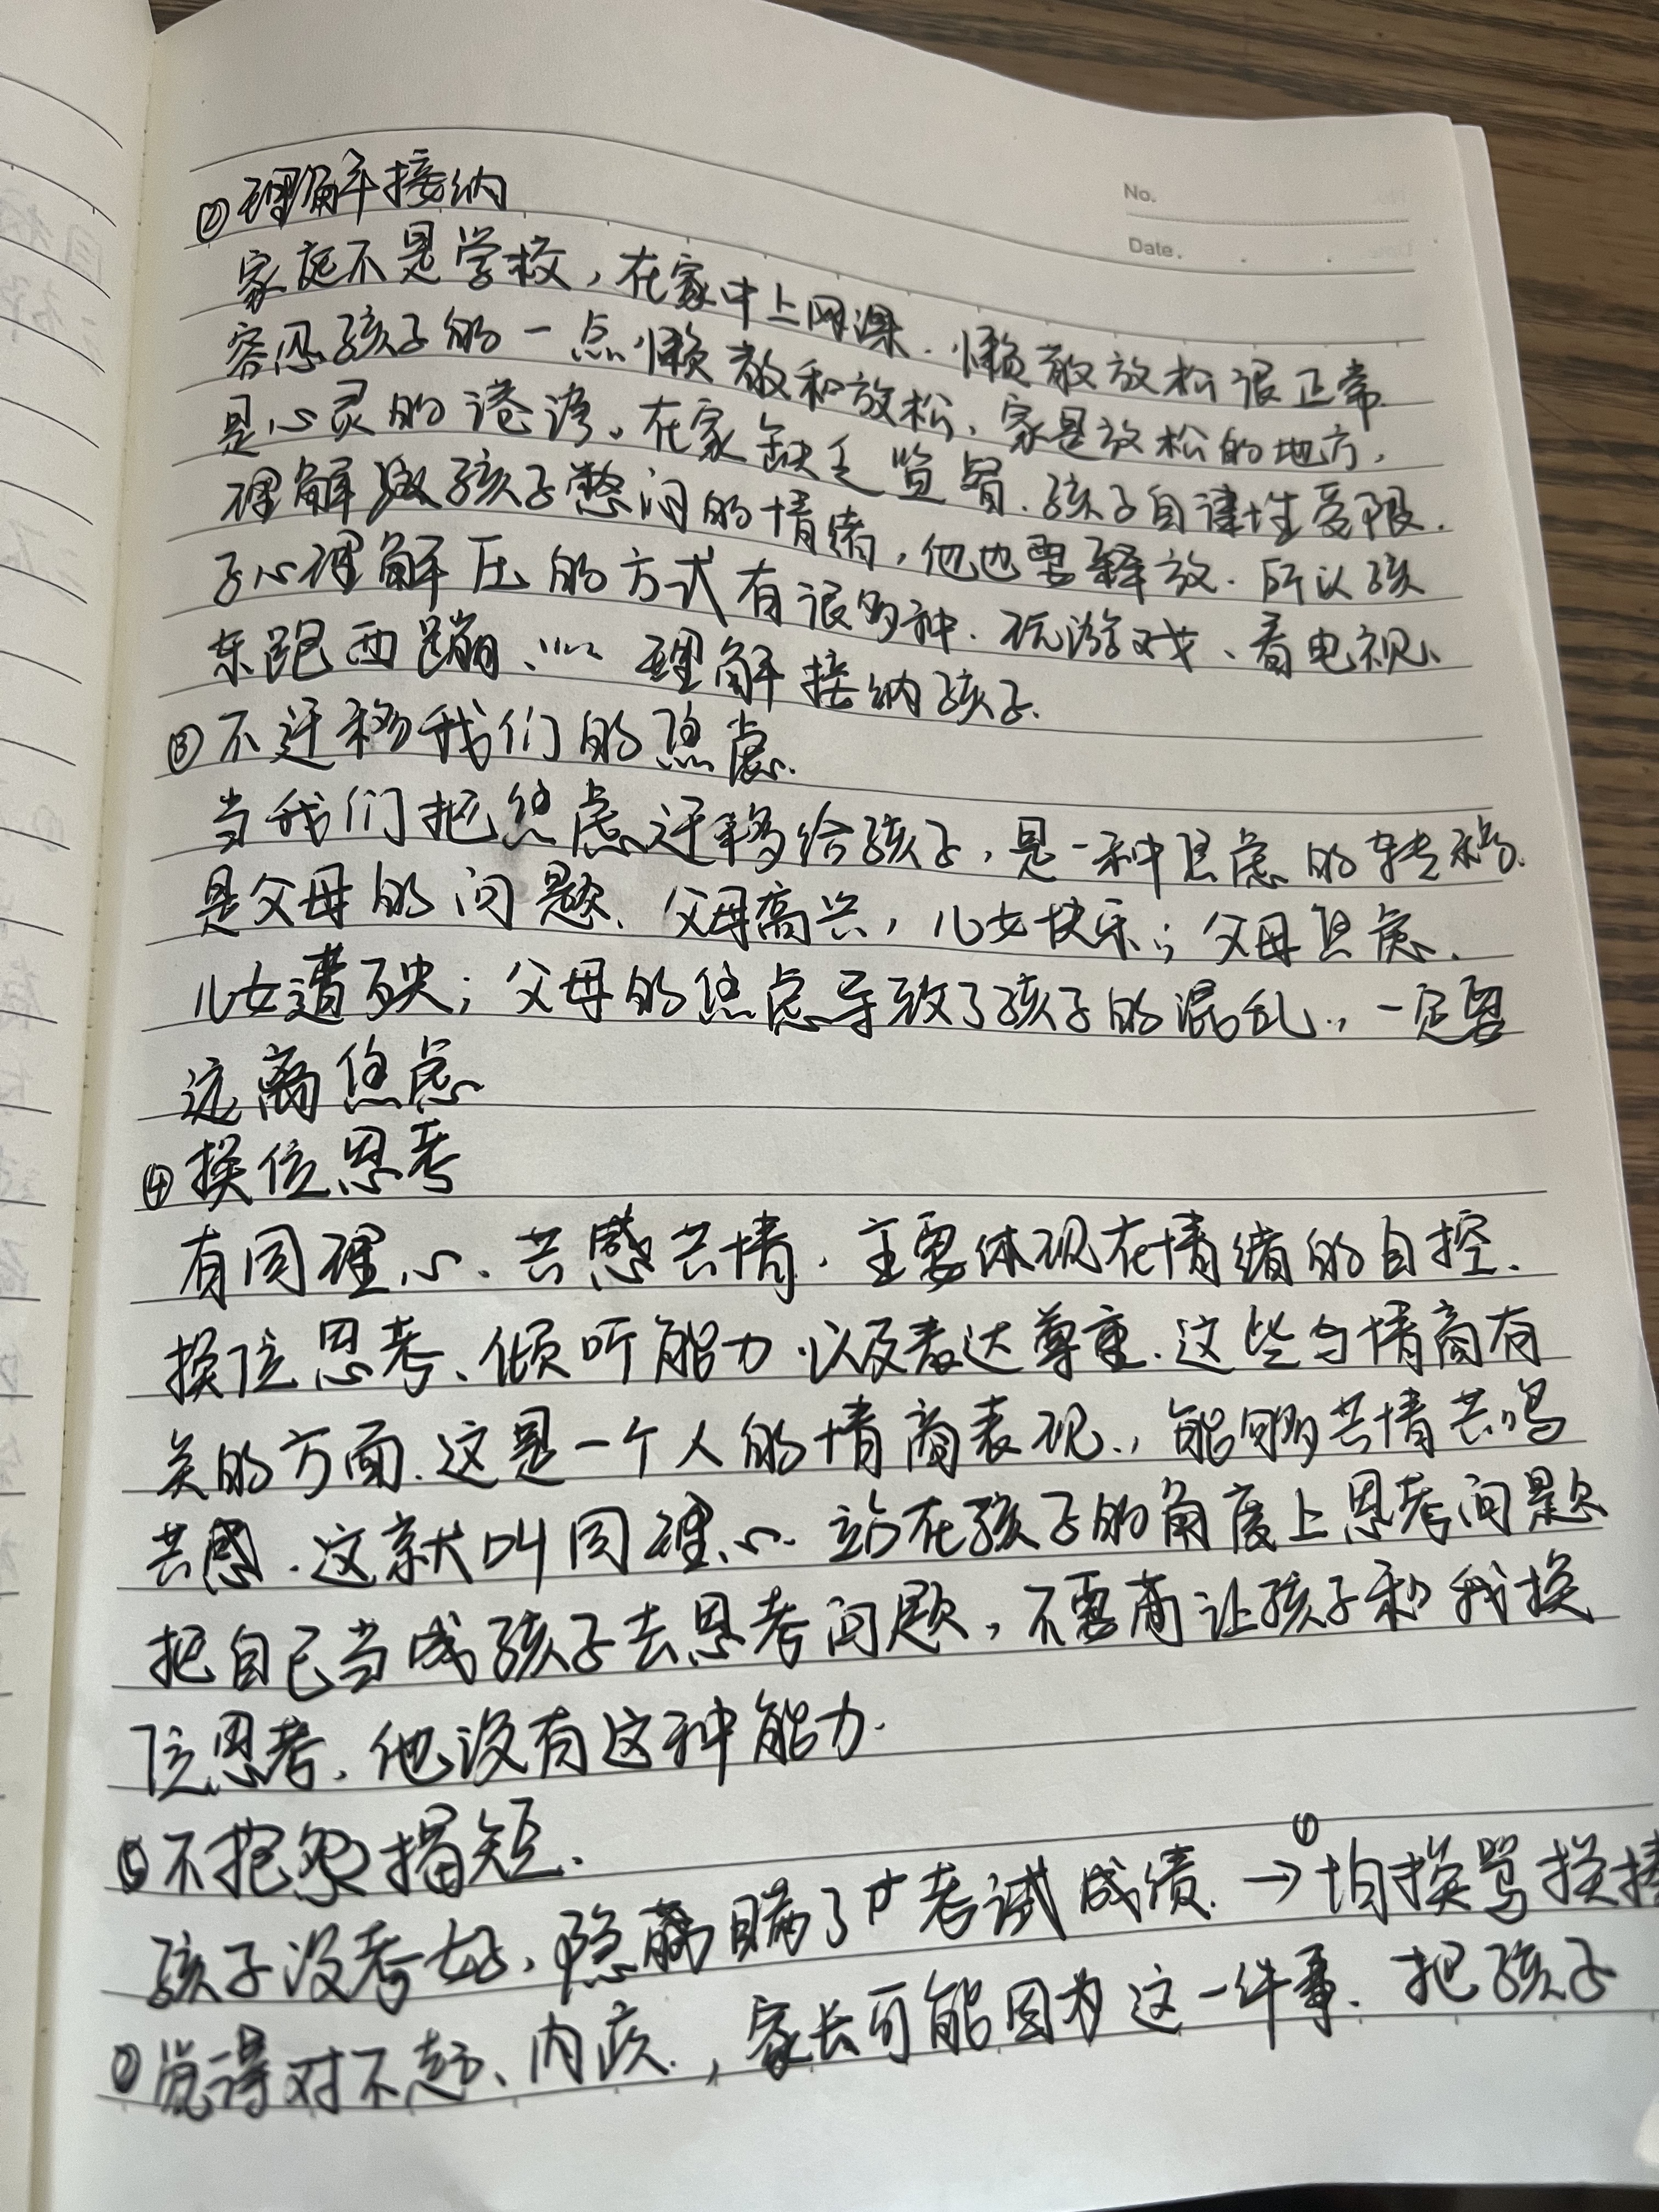 No.
Date.
②理解接纳
家庭不是学校，在家中上网课.懒散放松很正常.
容忍孩子的一点懒散和放松、家是放松的地方，
是心灵的港湾。在家缺乏监督.孩子自律性受限.
理解孩子憋闷的情绪，他也要释放.所以孩
子心理解压的方式有很多种.玩游戏、看电视、
东跑西蹦、…… 理解接纳孩子.
③不迁移我们的焦虑.
当我们把焦虑迁移给孩子，是一种焦虑的转移.
是父母的问题、父母高兴，儿女快乐；父母焦虑.
儿女遭殃；父母的焦虑导致了孩子的混乱.，一定要
远离焦虑
④换位思考
有同理心、共感共情，主要体现在情绪的自控.
换位思考、倾听能力以及表达尊重.这些与情商有
关的方面.这是一个人的情商表现.，能够共情共鸣
共感.这就叫同理心.站在孩子的角度上思考问题
把自己当成孩子去思考问题，不要让孩子和我换
位思考、他没有这种能力.
⑤不抱怨揭短.
孩子没考好，隐瞒了考试成绩.→①怕挨骂挨揍
②觉得对不起、内疚.，家长可能因为这一件事.把孩子